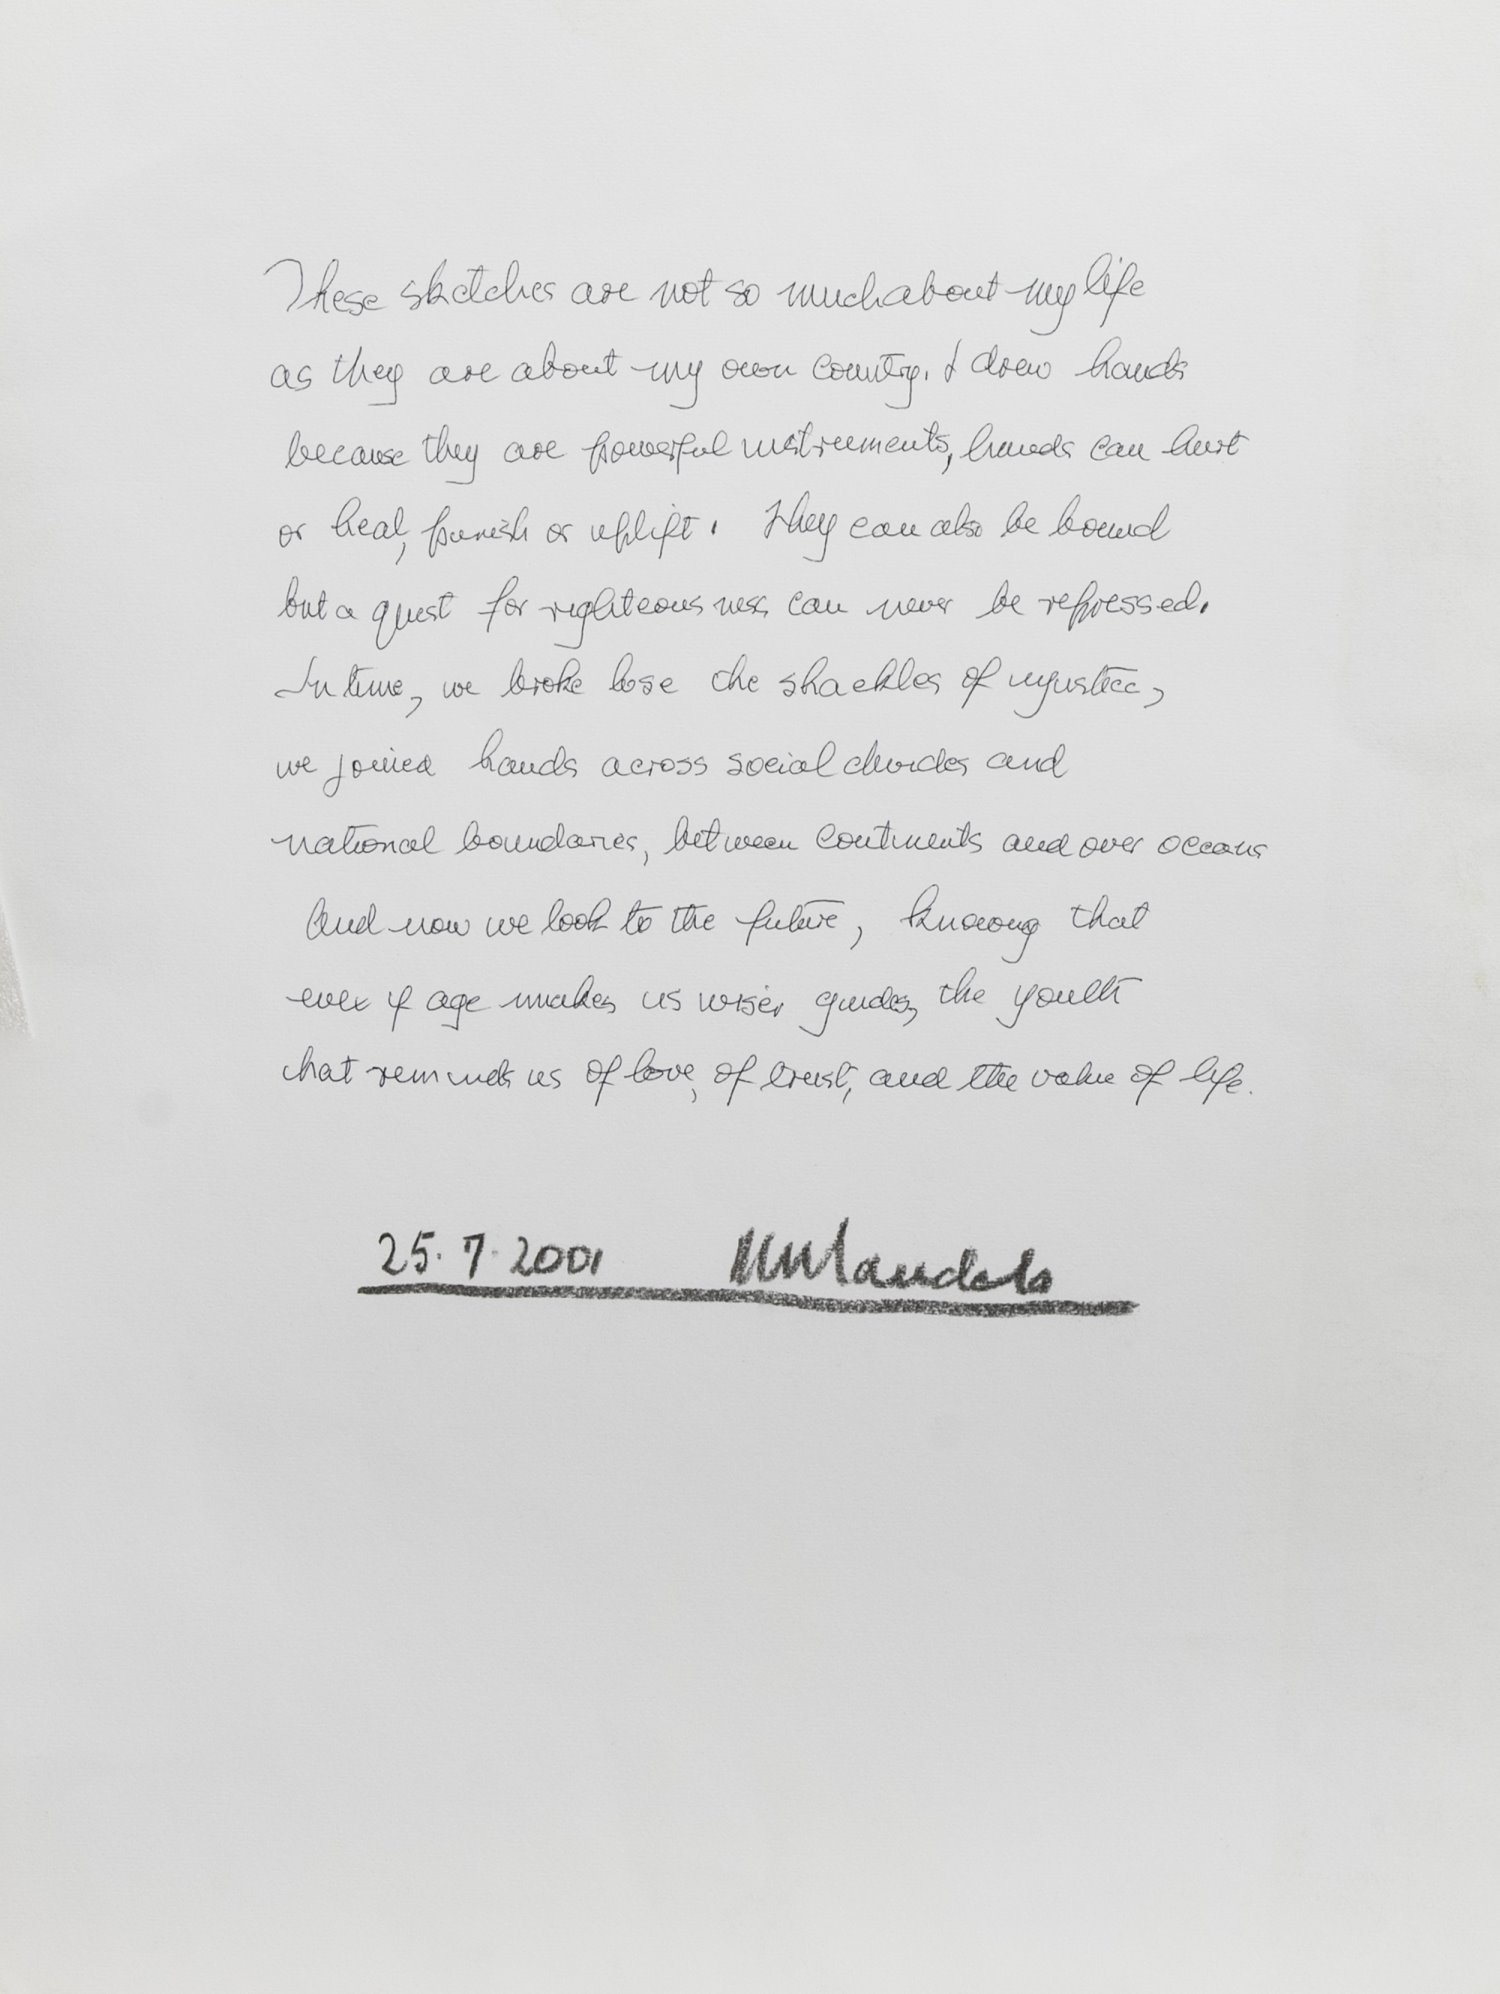 These sketches are not so much about my life
as they are about my own country. I drew hands
because they are powerful instruments, hands can hurt
or heal, punish or uplift. They can also be bound
but a quest for righteousness can never be repressed.
In time, we broke lose the shackles of injustice,
we joined hands across social divides and
national boundaries, between continents and over oceans
And now we look to the future, knowing that
even if age makes us wiser guides, the youth
that reminds us of love, of trust, and the value of life.
25.7.2001 NMandela